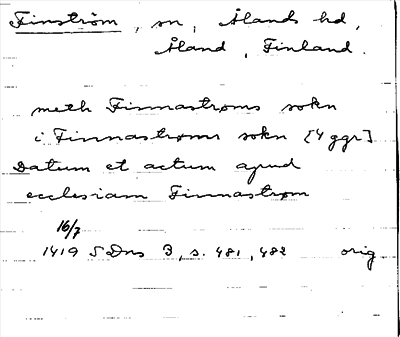 Finström, sn, Ålands hd,
Åland, Finland.
meth Finnastrøms sokn
i Finnastrøms sokn [4 ggr]
Datum et actum apud
ecclesiam Finnastrøm
16/7
1419 SDns 3, s. 481, 482 orig